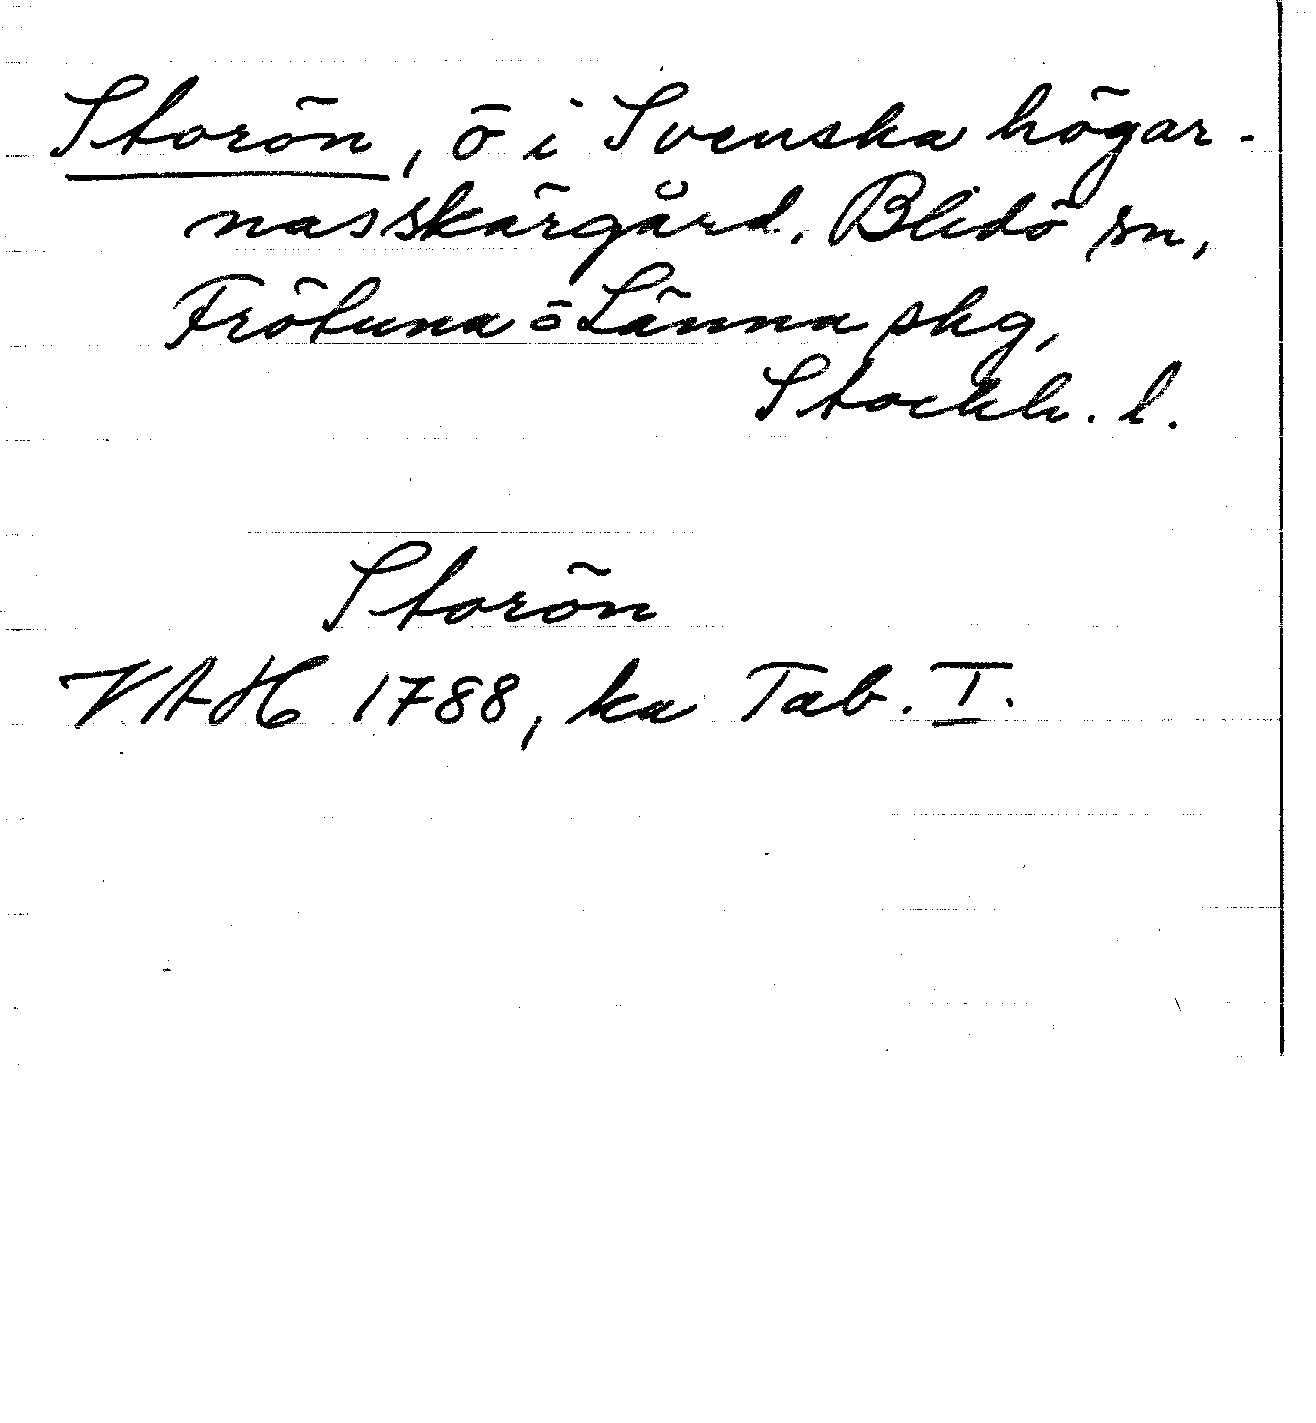 Storön, ö i Svenska högar-
nas skärgård. Blidö sn,
Frötuna o Länna skg,
Stockh. l.
Storön
VAH 1788, ka Tab. I.